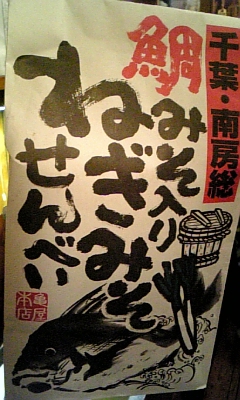 千葉・南房総
鯛みそ入り
ねぎみそ
せんべい
亀屋
本店